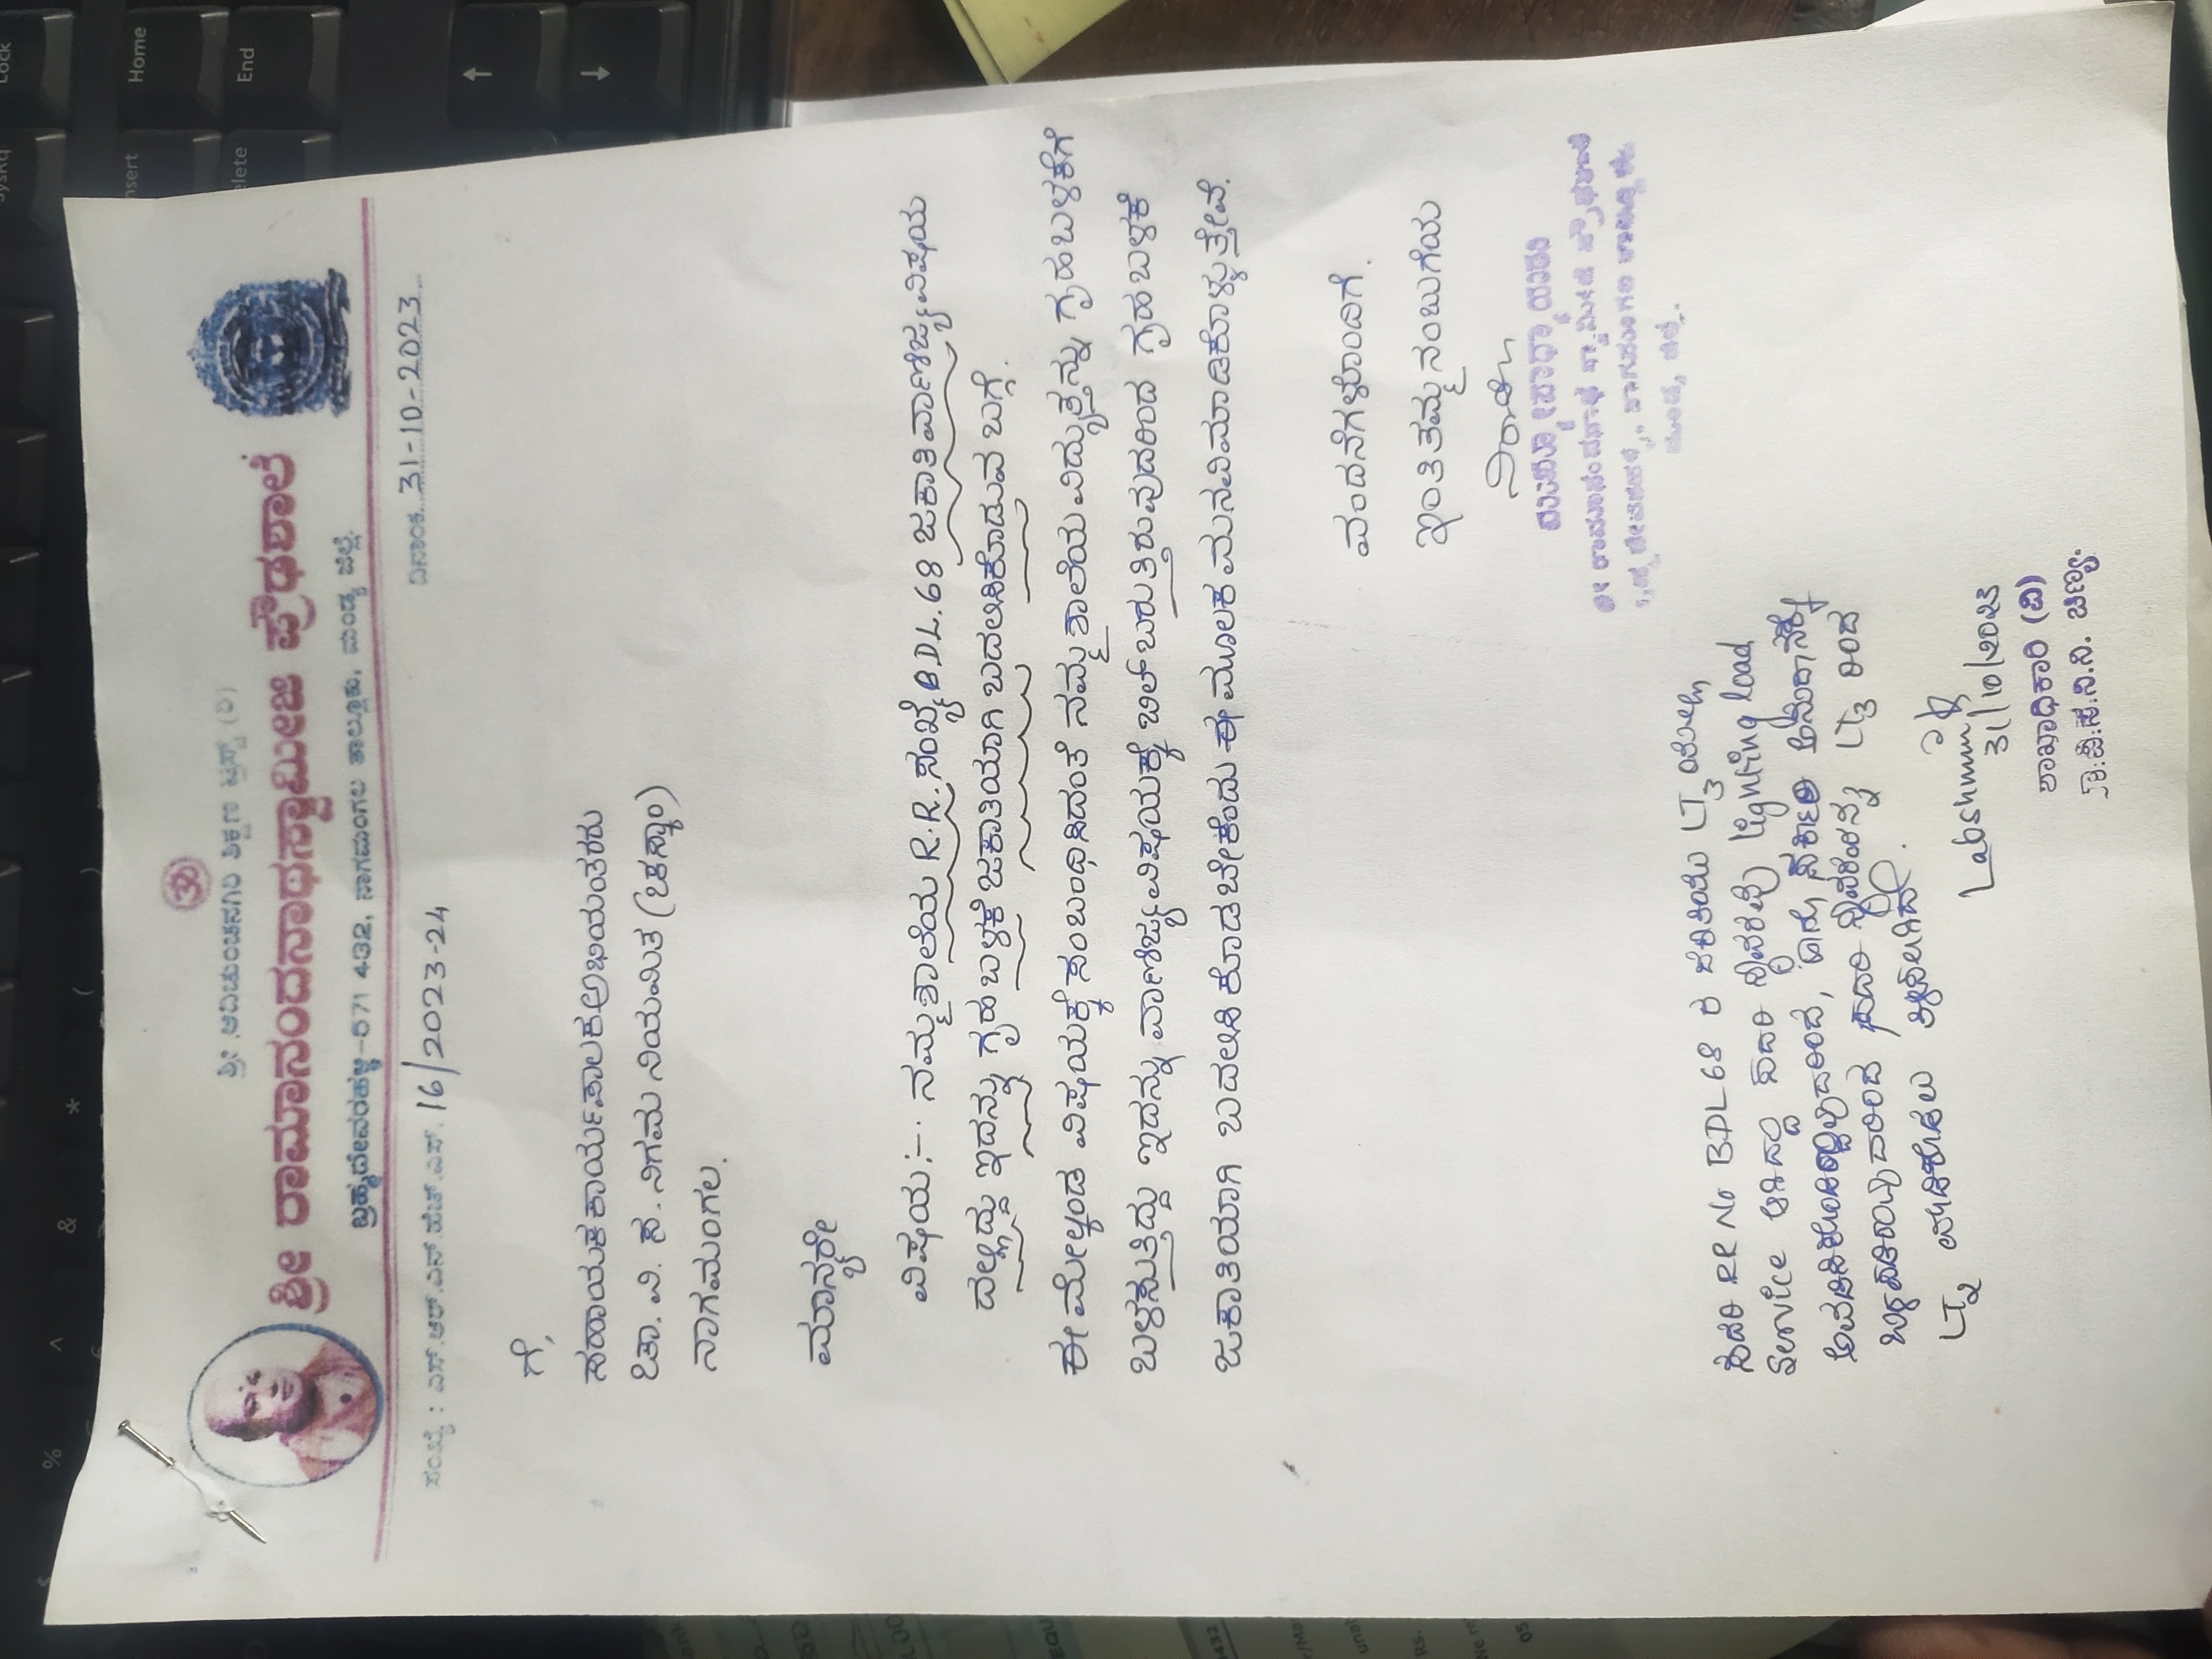 ಓಂ
ಶ್ರೀ ಆದಿಚುಂಚನಗಿರಿ ಶಿಕ್ಷಣ ಟ್ರಸ್ಟ್ (ರಿ)
ಶ್ರೀ ರಾಮಾನಂದನಾಥಸ್ವಾಮೀಜಿ ಪ್ರೌಢಶಾಲೆ
ಬ್ರಹ್ಮದೇವರಹಳ್ಳಿ-571 432, ನಾಗಮಂಗಲ ತಾಲ್ಲೂಕು, ಮಂಡ್ಯ ಜಿಲ್ಲೆ.
ಸಂಖ್ಯೆ : ಎಸ್.ಆರ್.ಎನ್.ಹೆಚ್.ಎಸ್. 16/2023-24 ದಿನಾಂಕ 31-10-2023
ಗೆ,
ಸಹಾಯಕ ಕಾರ್ಯಪಾಲಕ ಅಭಿಯಂತರರು
ಚಾ. ವಿ. ಸ. ನಿಗಮ ನಿಯಮಿತ (ಚಸ್ಕಾಂ)
ನಾಗಮಂಗಲ.
ಮಾನ್ಯರೇ
ವಿಷಯ:- ನಮ್ಮ ಶಾಲೆಯ R.R. ಸಂಖ್ಯೆ B.D.L.68 ಜಕಾತಿ ವಾಣಿಜ್ಯ ವಿಷಯ
ವಲ್ಲಿದ್ದು ಇದನ್ನು ಗೃಹ ಬಳಕೆ ಜಕಾತಿಯಾಗಿ ಬದಲಿಸಿಕೊಡುವ ಬಗ್ಗೆ.
ಈ ಮೇಲ್ಕಂಡ ವಿಷಯಕ್ಕೆ ಸಂಬಂಧಿಸಿದಂತೆ ನಮ್ಮ ಶಾಲೆಯ ವಿದ್ಯುತ್ತನ್ನು ಗೃಹ ಬಳಕೆಗೆ
ಬಳಸುತ್ತಿದ್ದು ಇದನ್ನು ವಾಣಿಜ್ಯ ವಿಷಯಕ್ಕೆ ಬಿಲ್ ಬರುತ್ತಿರುವುದರಿಂದ ಗೃಹ ಬಳಕೆ
ಜಕಾತಿಯಾಗಿ ಬದಲಿಸಿ ಕೊಡಬೇಕೆಂದು ಈ ಮೂಲಕ ಮನವಿ ಮಾಡಿಕೊಳ್ಳುತ್ತೇವೆ.
ವಂದನೆಗಳೊಂದಿಗೆ.
ಇಂತಿ ತಮ್ಮ ನಂಬುಗೆಯ
ಮುಖ್ಯೋಪಾಧ್ಯಾಯರು
ಶ್ರೀ ರಾಮಾನಂದನಾಥ ಸ್ವಾಮೀಜಿ ಪ್ರೌಢಶಾಲೆ
ಬ್ರಹ್ಮದೇವರಹಳ್ಳಿ, ನಾಗಮಂಗಲ ತಾಲ್ಲೂಕು
ಮಂಡ್ಯ ಜಿಲ್ಲೆ.
ಸದರಿ RR No BDL68 ರ ಜಕಾತಿಯು LT3 ಯಲ್ಲಿ
Service ಆಗಿದ್ದು ಸದರಿ ಸ್ಥಾವರವು Lighting load
ಸದರಿ ಸ್ಥಾವರವನ್ನು LT3 ರಿಂದ
LT2 ಮಾಡಿಕೊಡಲು ತಿಳಿಸಲಾಗಿದೆ.
Lakshmana
31/10/2023
ಶಾಖಾಧಿಕಾರಿ (ವಿ)